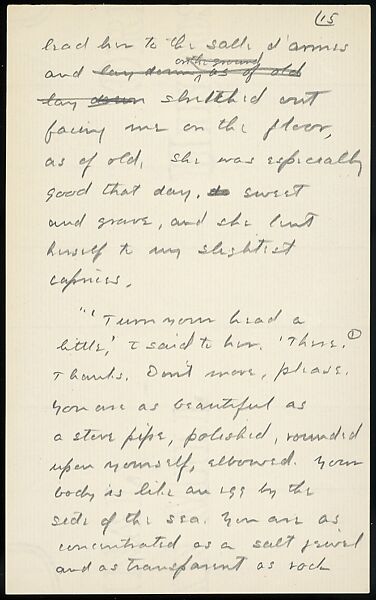 15
led her to the salle d'armes
and lay down on the ground, as of old
lay down stretched out
facing me on the floor,
as of old. She was especially
good that day, so sweet
and grave, and she lent
herself to my slightest
caprices.
"'Turn your head a
little,' I said to her. 'There. ①
Thanks. Don't move, please.
You are as beautiful as
a stove pipe, polished, rounded
upon yourself, elbowed. Your
body is like an egg by the
side of the sea. You are as
concentrated as a salt jewel
and as transparent as rock